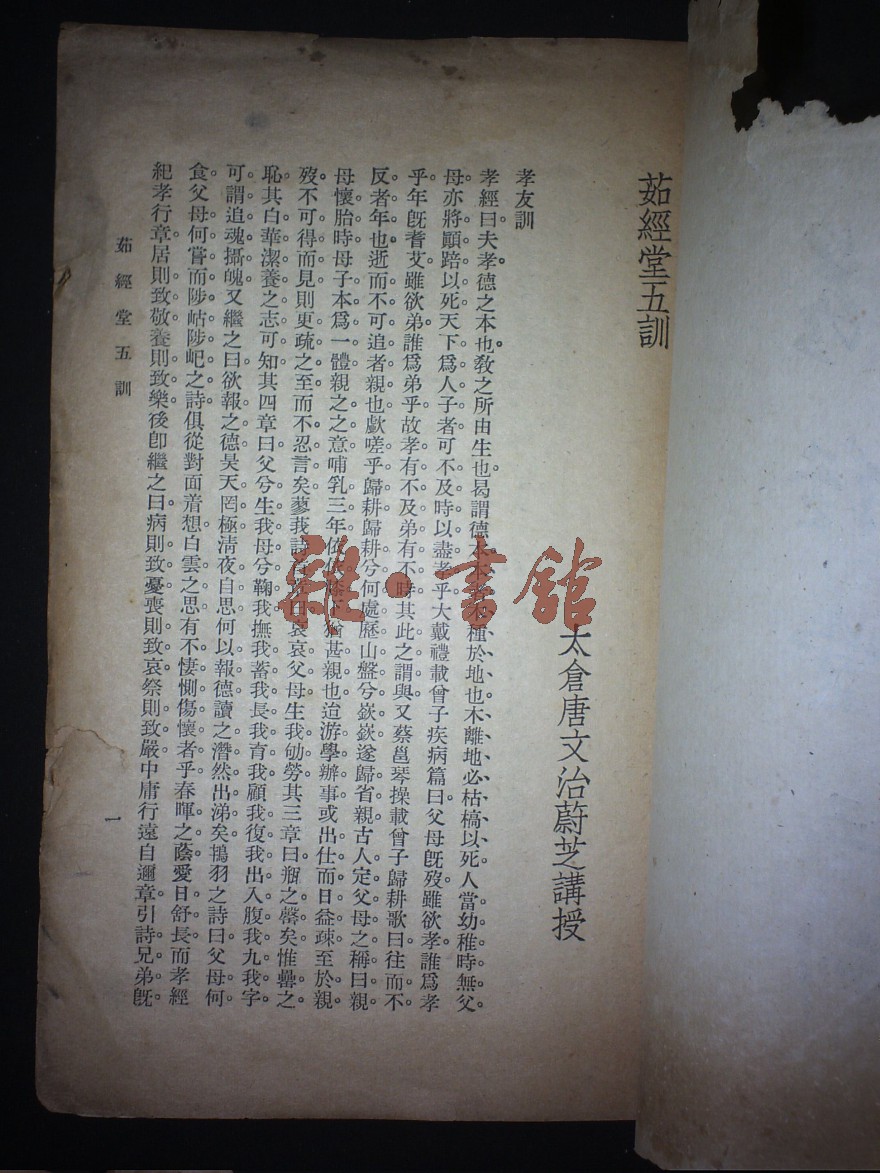 茹經堂五訓
太倉唐文治蔚芝講授
孝友訓
孝經曰。夫孝德之本也。教之所由生也。曷謂德本。木種於地也、木離地必枯槁以死。人當幼稚時無父
母。亦將顚踣以死。天下爲人子者。可不及時以盡孝乎。大戴禮載曾子疾病篇曰。父母旣歿。雖欲孝誰爲孝
乎。年旣耆艾。雖欲弟誰爲弟乎。故孝有不及。弟有不時。其此之謂與。又蔡邕琴操載曾子歸耕歌曰。往而不
反者年也。逝而不可追者親也。歔嗟乎歸耕。歸耕兮何處。歷山盤兮嶔嶔。遂歸省親。古人定父母之稱曰親。
母懷胎時。母子本爲一體。親之之意。哺乳三年。猶甚親也。迨游學辦事。或出仕而日益疎。至於親
歿。不可得而見。則更疏之至而不忍言矣。蓼莪詩曰。哀哀父母。生我劬勞。其三章曰。瓶之罄矣。惟罍之
恥。其白華潔養之志可知。其四章曰。父兮生我。母兮鞠我。撫我蓄我。長我育我。顧我復我。出入腹我。九我字
可謂追魂攝魄。又繼之曰。欲報之德。昊天罔極。淸夜自思。何以報德。讀之潸然出涕矣。鴇羽之詩曰。父母何
食。父母何嘗。而陟岵陟屺之詩。俱從對面着想。白雲之思。有不悽惻傷懷者乎。春暉之蔭。愛日舒長。而孝經
紀孝行章。居則致敬。養則致樂。後卽繼之曰。病則致憂。喪則致哀。祭則致嚴。中庸行遠自邇章引詩。兄弟旣
茹經堂五訓
一
雜·書館